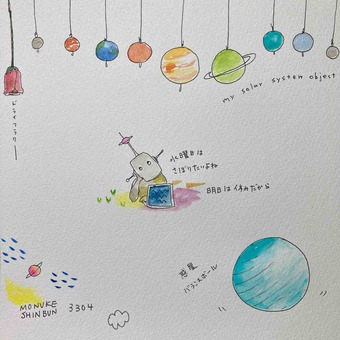 my solar system object
ドライフラワー
水曜日は
さぼりたいよね
日月は休みだから
惑星
バランスボール
MONUKE
SHINBUN 3304